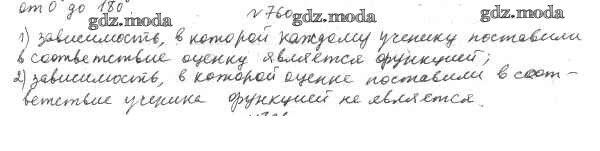 от 0° до 180°
№760
gdz.moda gdz.moda gdz.moda
1) зависимость, в которой каждому ученику поставили
в соответствие оценку является функцией;
2) зависимость, в которой оценке поставили в соот-
ветствие ученика функцией не является.